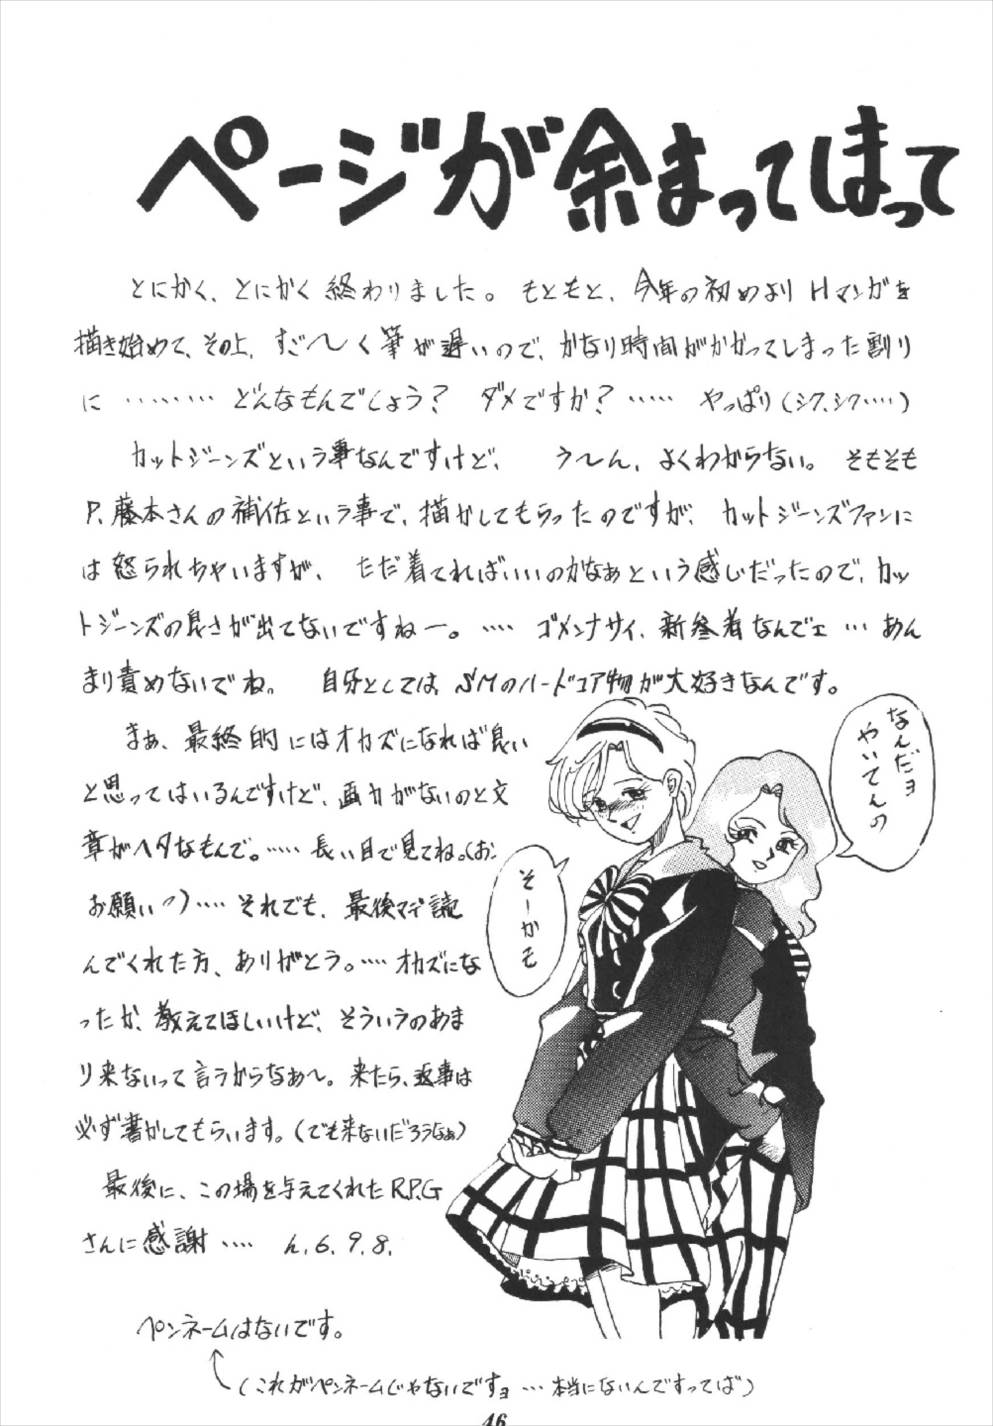 ページが余まってしまって
とにかく、とにかく終わりました。もともと、今年の初めよりHマンガを
描き始めて、その上、すご〜く筆が遅いので、かなり時間がかかってしまった割り
に………どんなもんでしょう? ダメですか?…… やっぱり(シク、シク……)
カットジーンズという事なんですけど、 う〜ん、よくわからない。そもそも
P.藤本さんの補佐という事で、描かしてもらったのですが、カットジーンズファンに
は怒られちゃいますが、ただ着てればいいのかなぁという感じだったので、カッ
トジーンズの良さが出てないですねー。…… ゴメンナサイ、新参者なんでェ…あん
まり責めないでね。 自分としては、SMのハードコア物が大好きなんです。
まぁ、最終的にはオカズになれば良い
と思ってはいるんですけど、画力がないのと文
章がヘタなもんで。……長い目で見てね。(お
お願いっ)……それでも、最後マデ読
んでくれた方、ありがとう。……オカズにな
ったか、教えてほしいけど、そういうのあま
り来ないって言うからなあ〜。来たら、返事は
必ず書かしてもらいます。(でも来ないだろうなぁ)
最後に、この場を与えてくれたR.P.G
さんに感謝…… h.6.9.8.
なんだヨ
やいてんの
そーかも
ペンネームはないです。
(これがペンネームじゃないですョ…本当にないんですってば)
46